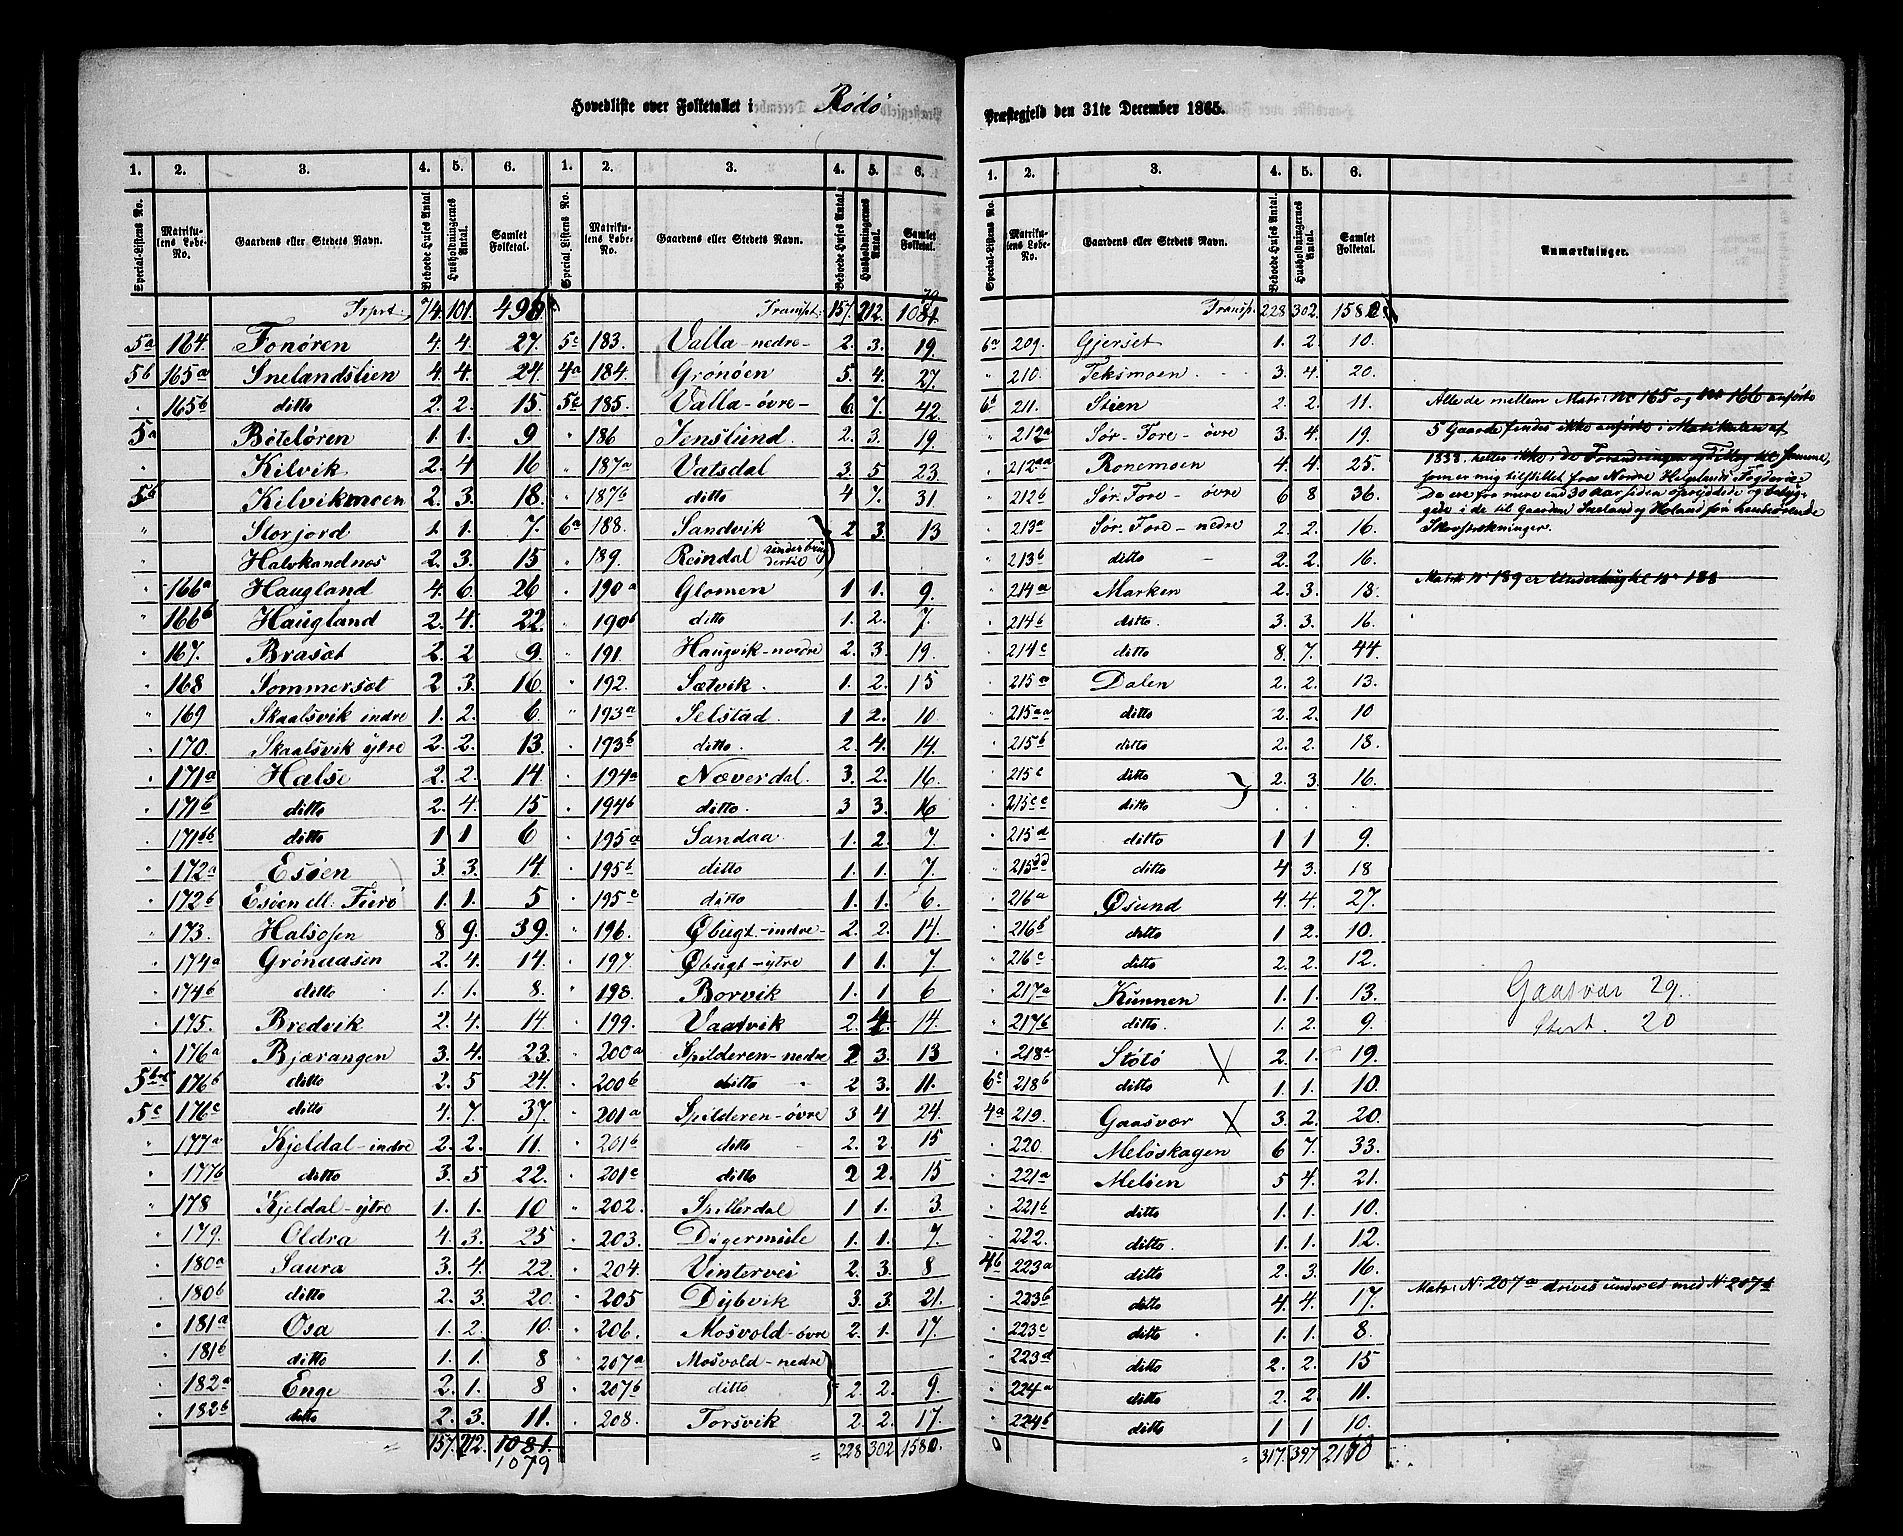 Hovedliste over Folketallet i Rödö Præstegjeld den 31te December 1865.
1. 2. 3. 4. 5. 6. 1. 2. 3. 4. 5. 6.
Special-Listens No. Matrikulens Løbe-No. Gaardens eller Stedets Navn. Beboede Huses Antal Husholdningernes Antal. Samlet Folketal. Special Listens No. Matrikulens Løbe-No. Gaardens eller Stedets Navn. Beboede Huses Antal. Husholdningernes Antal. Samlet Folketal.
Trprt. 74. 101. 496 Transpt. 157. 212. 1081 79
5a 164. Fonören 4. 4. 27. 5c 183. Valla nedre 2. 3. 19.
5b 165a Snelandslien 4. 4. 24. 4a 184. Grönöen 5. 4. 27.
" 165b ditto 2. 2. 15. 5c 185. Valla-övre 6. 7. 42.
5a Böteløren 1. 1. 9 " 186 Jenslund. 2. 3. 19.
" Kilvik 2. 4 16 " 187a Vatsdal 3. 5 23.
5b Kilvikmoen 2. 3. 18. " 187b ditto 4 7. 31.
" Storjord 1. 1. 7. 6a 188. Sandvik 2 3. 13
Halvkandnæs 2. 3. 15 " 189. Reindal
" 166a Haugland 4. 6. 26 " 190a Glomen 1 1. 9.
" 166b Haugland 2. 4. 22. " 190b ditto 1. 2. 7.
" 167. Brasøt 2. 2 9. " 191. Haugvik-nordre 2. 3. 19.
" 168 Sommersøt 2 3. 16. " 192. Sætvik. 1. 2. 15
" 169 Skaalsvik indre 1. 2. 6. " 193a Selstad. 1 2. 10
" 170. Skaalsvik ytre 2. 2. 13. " 193b ditto. 2. 4. 14.
" 171a Halse 2. 2. 14 " 194a Næverdal. 3. 2. 16.
" 171b ditto 2. 4. 15. " 194b ditto. 3 3. 16
" 171bb ditto 1 1 6 " 195a Sandaa. 1. 2. 7.
" 172a Esöen 3. 3. 14. " 195b ditto 1. 1. 7.
" 172b Esöen M. Fierö 1. 1. 5 " 195c ditto 1. 1. 6.
" 173. Halsosen 8 9. 39. " 196. Øbugt-indre 2. 2. 14.
" 174a Grönaasen 2. 4. 14. " 197. Øbugt-ytre 1 1. 7.
" 174b ditto 1. 1. 8. " 198. Borvik 1. 1 6
" 175. Bredvik 2. 4. 14 " 199. Vaatvik 2. 4. 14.
" 176a Bjærangen 3. 4. 23. " 200a Spilderen-nedre 2 3. 13
5b-c 176b ditto 2. 5 24. " 200b ditto 2 3. 11.
5c 176c ditto 4. 7. 37. " 201a Spilderen-övre 3 4 24.
" 177a Kjeldal-indre 2. 2. 11. " 201b ditto 2. 2. 15
" 177b ditto 3. 5 22. " 201c ditto 2 2. 15
" 178 Kjeldal-ytre 1. 1. 10 " 202. Spillerdal 1 1. 3.
" 179. Oldra 4. 3. 25 " 203. Digermule 1. 1. 7.
" 180a Saura 3. 4. 22. " 204. Vintervei 2. 3. 8
" 180b ditto 2. 3. 20. " 205 Dybvik 3. 3. 21.
" 181a Osa 1. 2. 10. " 206. Mosvold-övre 2. 1. 17.
" 181b ditto 1. 1. 8 " 207a Mosvold-nedre
" 182a Enge 2. 1. 8 " 207b ditto 2. 2. 9.
" 182b ditto 2. 3. 11. " 208. Torsvik 2. 2. 17.
157. 212. 1081. 228 302 1580.
1079
1. 2. 3. 4. 5. 6.
Special-Listens No. Matrikulens Løbe-No. Gaardens eller Stedets Navn. Beboede Huses Antal. Husholdningernes Antal. Samlet Folketal. Anmærkninger.
Transp. 228 302. 158
6a 209. Gjerset 1. 2. 10.
" 210. Teksmoen 3. 4. 20.
6c 211. Stien 2. 2. 11.
" 212a Sør-Fore-övre 3. 4. 19.
" 212aa Ronemoen 4. 4. 25.
" 212b Sør-Fore-övre 6 8 36.
" 213a Sør-Fore-nedre 2. 2. 16.
" 213b ditto 2. 2. 16.
" 214a Marken 2. 3. 13.
" 214b ditto. 3. 3. 16.
" 214c ditto 8. 7. 44.
" 215a Dalen 2. 2. 13.
" 215aa ditto 2. 2. 10
" 215b ditto 2. 2. 18.
" 215c ditto 2. 3. 16.
" 215cc ditto
" 215d ditto 1 1 9.
" 215dd ditto 4 3. 18
" 216a Øsund 4. 4. 27.
" 216b ditto 1 2. 10.
" 216c ditto 2. 2. 12.
" 217a Kunnen 1. 1. 13.
" 217b ditto. 1. 2. 9.
" 218a Stötö 2. 1. 19.
6c 218b ditto 1. 1. 10.
4a 219. Gaasvær 3. 2. 20.
" 220. Melöskagen 6 7. 33.
" 221a Melöen 5 4. 21.
" 221b ditto 1. 1. 10.
" 222. ditto. 1. 1. 12.
4b 223a ditto 2. 3. 16.
" 223b ditto 4. 4. 17.
" 223c ditto 1. 1. 8.
" 223d ditto 2. 2. 15
" 224a ditto 2. 2. 11.
" 224b ditto 1 1 10.
317. 397
Alle de mellem Matr: No 165 og No 166 anförte
5 Gaarde findes ikke anförte i Matrikulen af
1838, heller ikke i de Forandringer og Tillæg til samme,
som er mig tilstillet fra Nordre Helgelands Fogderie:
De ere for mere end 30 Aar siden opryddede og bebyg-
gede i de til Gaarden Sneland og Holand
Skovstrækninger.
Matr. No 189 er Underbrug til No 188
Gaasvær 29.
20
Matr: No. 207a drives under et med No. 207b